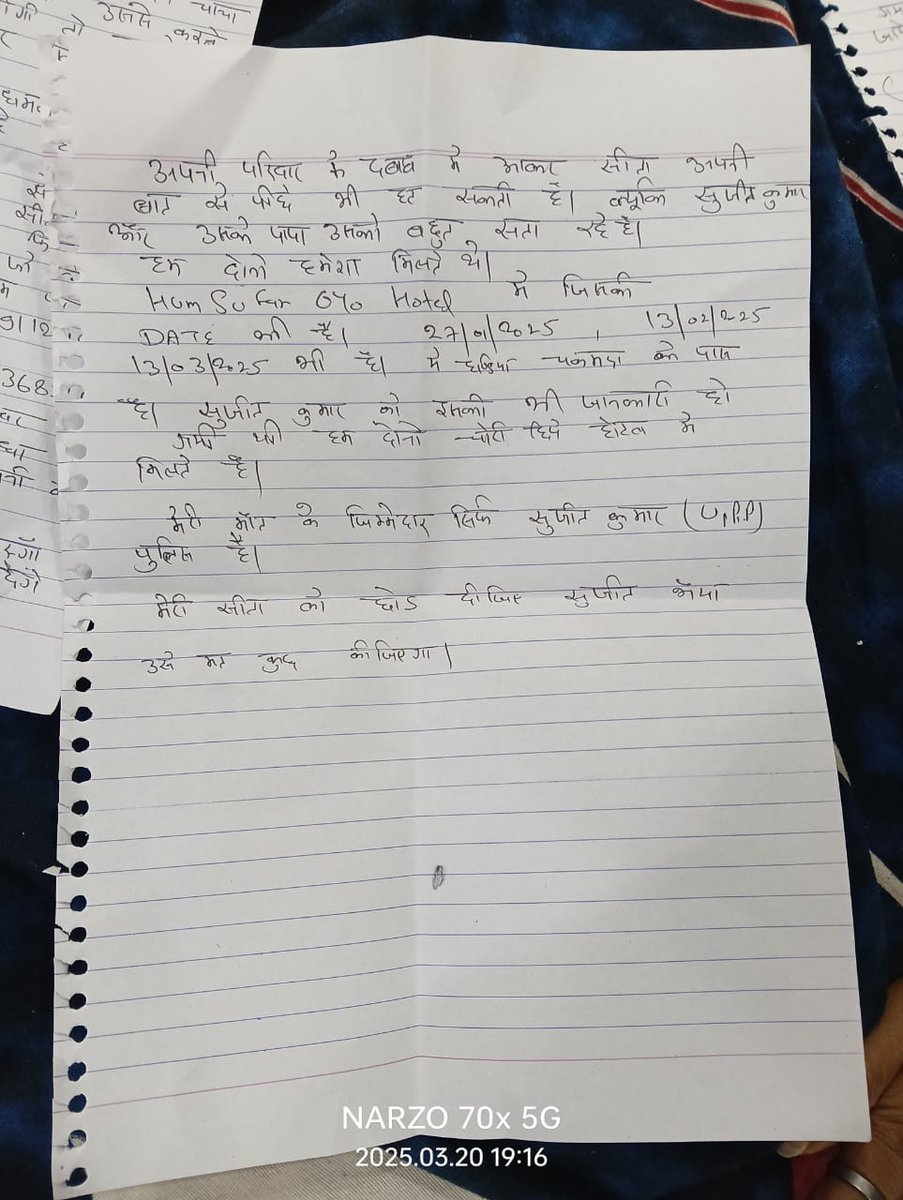 उससे चाचा
करले
अपनी परिवार के दबाब मे आकर सीता अपनी
बात से पीछे भी हट सकती है। क्यूकि सुजीत कुमार
और उसके पापा उसको बहुत सता रहे है।
हम दोनो हमेशा मिलते थे।
Hum Sufar OYO Hotel में जिसकी
DATE भी है। 27/01/2025 , 13/02/2025
13/03/2025 भी है। मे हडिया चकमदा के पास
है। सुजीत कुमार को इसकी भी जानकारी हो
गयी थी हम दोनो चोरी छिपे होटल मे
मिलते है।
मेरी मौत के जिम्मेदार सिर्फ सुजीत कुमार (U.P.P)
पुलिस है।
मेरी सीता को छोड दीजिए सुजीत भैया
उसे मत कुछ कीजिएगा।
9112
368
NARZO 70x 5G
2025.03.20 19:16